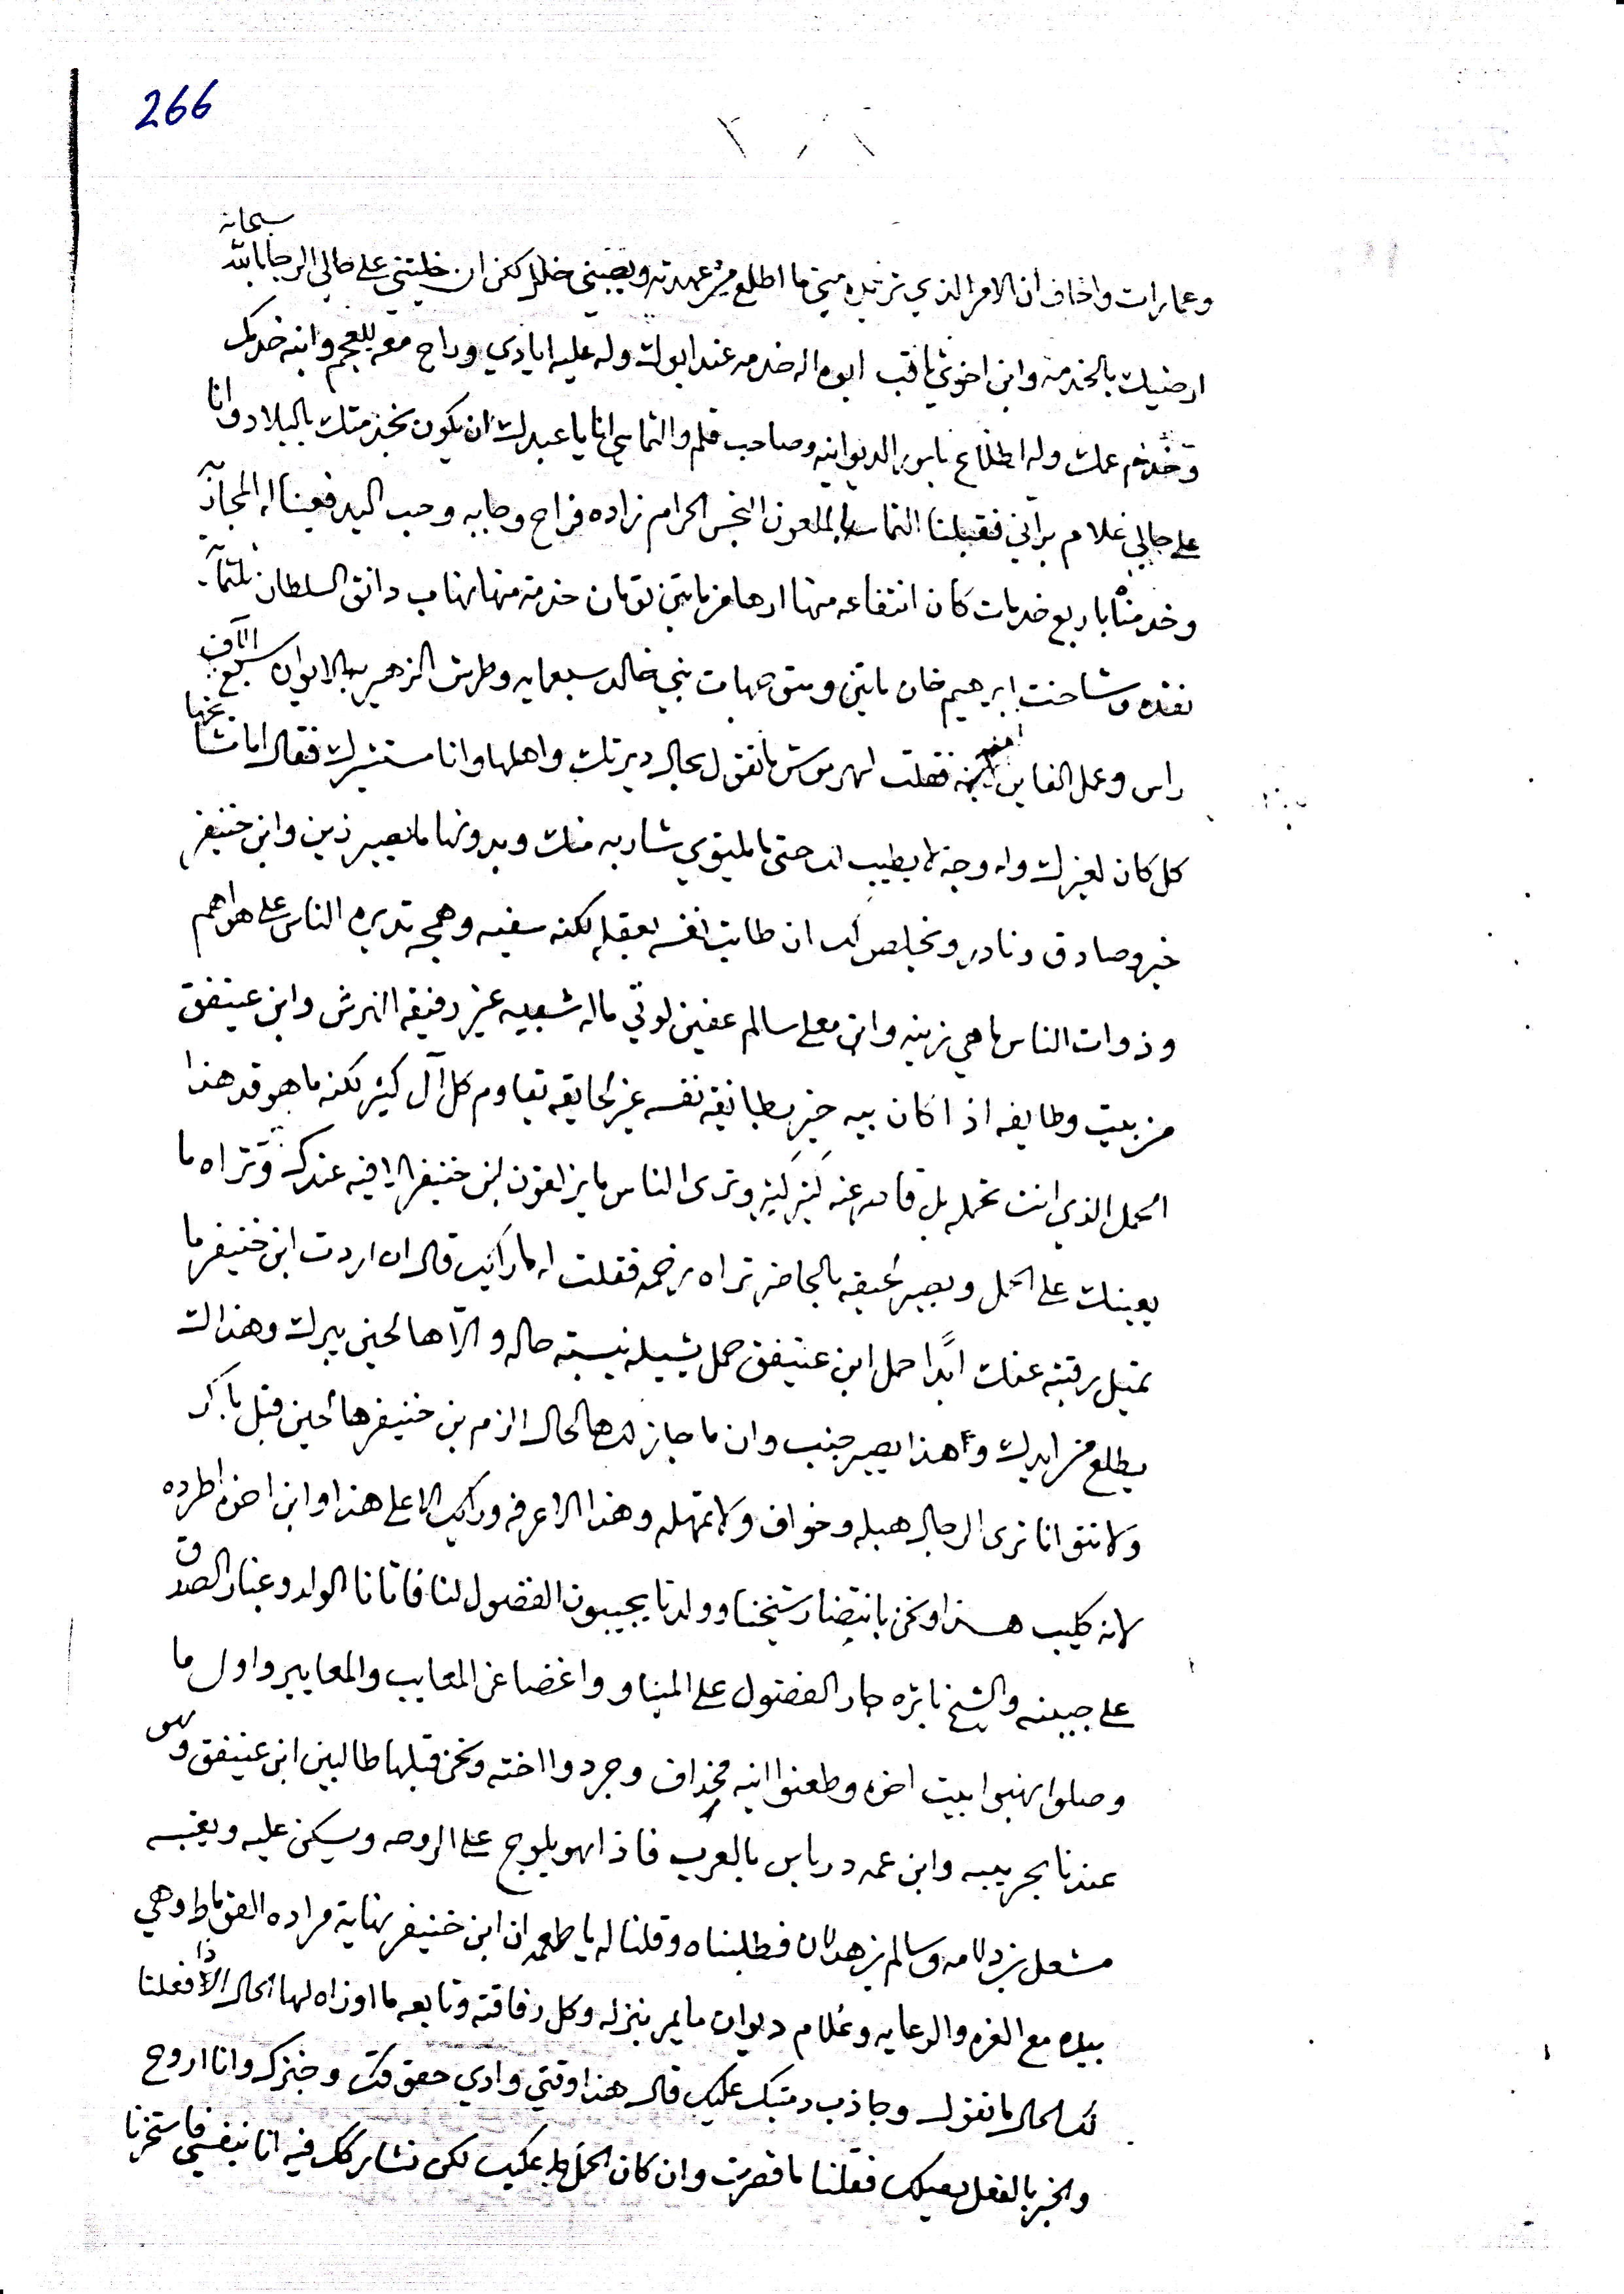 266
سبحانه
وعمارات واخاف ان الامر الذي تريده مني ما اطلع من عهدته ويصيبني خلل لكن ان خليتني على حالي الرجا بالله
ارضيك بالخدمة وابن اخوي ثاقب ابوه اله خدمه عند ابوك وله عليه ايادي وراح معه للعجم وابنه خدمك
وخدم عمك وله اطلاع بامور الديوانيه وصاحب قلم والتماسي انا يا عبدك ان يكون بخدمتك بالبلاد وانا
على حالي غلام براني فقبلنا التماس الملعون النجس الحرام زاده فراح وجابه وحب اليد فعينا له المجاز
وخدمنا باربع خدمات كان انتفاعه منها ازها من مايتين تومان خدمة منها نهاب دانق السلطان ثلثمآية
نفده وشاخت ابرهيم خان مايتين ومتوجهات بني خالد سبعمايه وطرش الزهيريه بالايوان سبع الآف
راس وعمل الفاس فقلت لهرموش ما تقول بحال ديرتك واهلها وانا مستشيرك فقال اما شاخها
كل كان لغيرك وله وجنه لا يطيب لك حتى ما ليتوي شاربه منك وبدونها ما يصير زين وابن خنيفر
خير وصادق ونادر ومخلص لك ان طابت نفسه لعقله لكنه سفيه وهمجه تديره الناس على هواهم
وذوات الناس ما هي زينه وابن معلى سالم عفين لوتي ماله شعبيه غير رفيقه الهرش وابن عنيفق
من بيت وطايفه اذا كان بيه خير بطايفة نفسه غير لحايقه تقاوم كل آل كثير لكنه ما هو قد هذا
الحمل الذي انت تحمله بل قاصر عنه كثير كثير وترى الناس ما يزلفون لبن خنيفر الا فيه عندك وتراه ما
يعينك على الحمل ويصير لحيقه بالحاضر تراه رخمه فقلت له ما رايك قال ان اردت ابن خنيفر ما
تميل رقبته عنك ابدًا حمل ابن عنيفق حمل يشيله نيسبته حاله والآ هالحين يبرك وهذاك
يطلع من ايدك وهذا يصير جنب وان ما جاز لك هالحال الزم بن خنيفر هالحين قبل باكر
ولا تتوانا ترى الرجال هبله وخواف ولا تمهله وهذا الراعرفه وراكب الاعلى هذا وابن اخوه اطرده
لانه كليب هذا ونحن بانتضار شيخنا وولدنا يجيبون الفضول لنا فاتانا الولد وغبار الصدق
على جبينه والشيخ نابزه حار الفضول على الميناو واغضا عن المعايب والمعايير واول ما
وصلوا نهبوا بيت اخوه وطعنوا ابنه مخداف وجردوا اخته ونحن قبلها طالبين ابن عنيفق وهو
عندنا بجريبه وابن عمه درباس بالعرب فاذا هو يلوج على الروحه ويسكن عليه ويقبه
مشعل بن دلامه وسالم بن هدلان فطلبناه وقلنا له يا طعمه ان ابن خنيفر نهاية مراده القوماط وهي
بيده مع الغره والرعايه وغلام ديوان ما يمر بنزله وكل رفاقته وتابعه ما اوزاه لهالحال الاذا فعلنا
لك الحال ما تقول وجاذب رمتك عليك قال هذا وقتي وادي حقوقك وخبزك وانا اروح
والخبر بالفعل يصيلك فقلنا ما قصرت وان كان الحمل عليك لكن نشاركك فيه انا بنفسي فاستخرنا